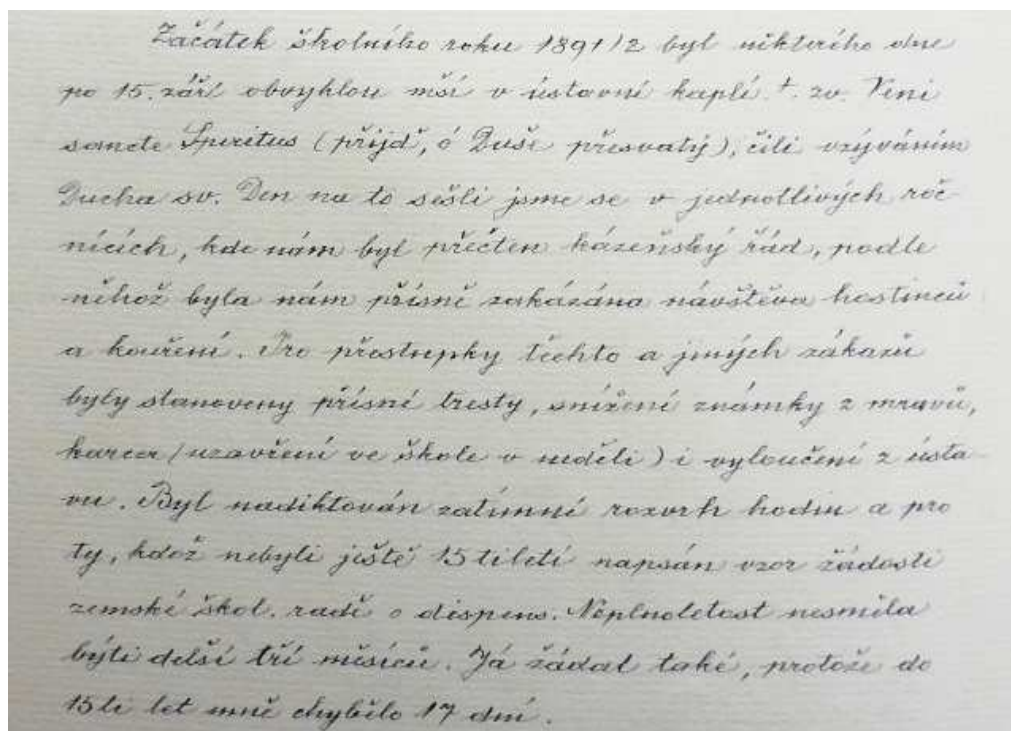 Začátek školního roku 1891/2 byl některého dne
po 15. září obvyklou mší v ústavní kapli t. zv. Veni
sancte Spiritus (přijď, ó Duše přesvatý), čili vzýváním
Ducha sv. Den na to sešli jsme se v jednotlivých roč-
nících, kde nám byl přečten kázeňský řád, podle
něhož byla nám přísně zakázána návštěva hostinců
a kouření. Pro přestupky těchto a jiných zákazů
byly stanoveny přísné tresty, snížení známky z mravů,
karcer (uzavření ve škole v neděli) i vyloučení z ústa-
vu. Byl nadiktován zatímní rozvrh hodin a pro
ty, kdož nebyli ještě 15tiletí napsán vzor žádosti
zemské škol. radě o dispens. Neplnoletost nesměla
býti delší tří měsíců. Já žádal také, protože do
15ti let mně chybělo 17 dní.